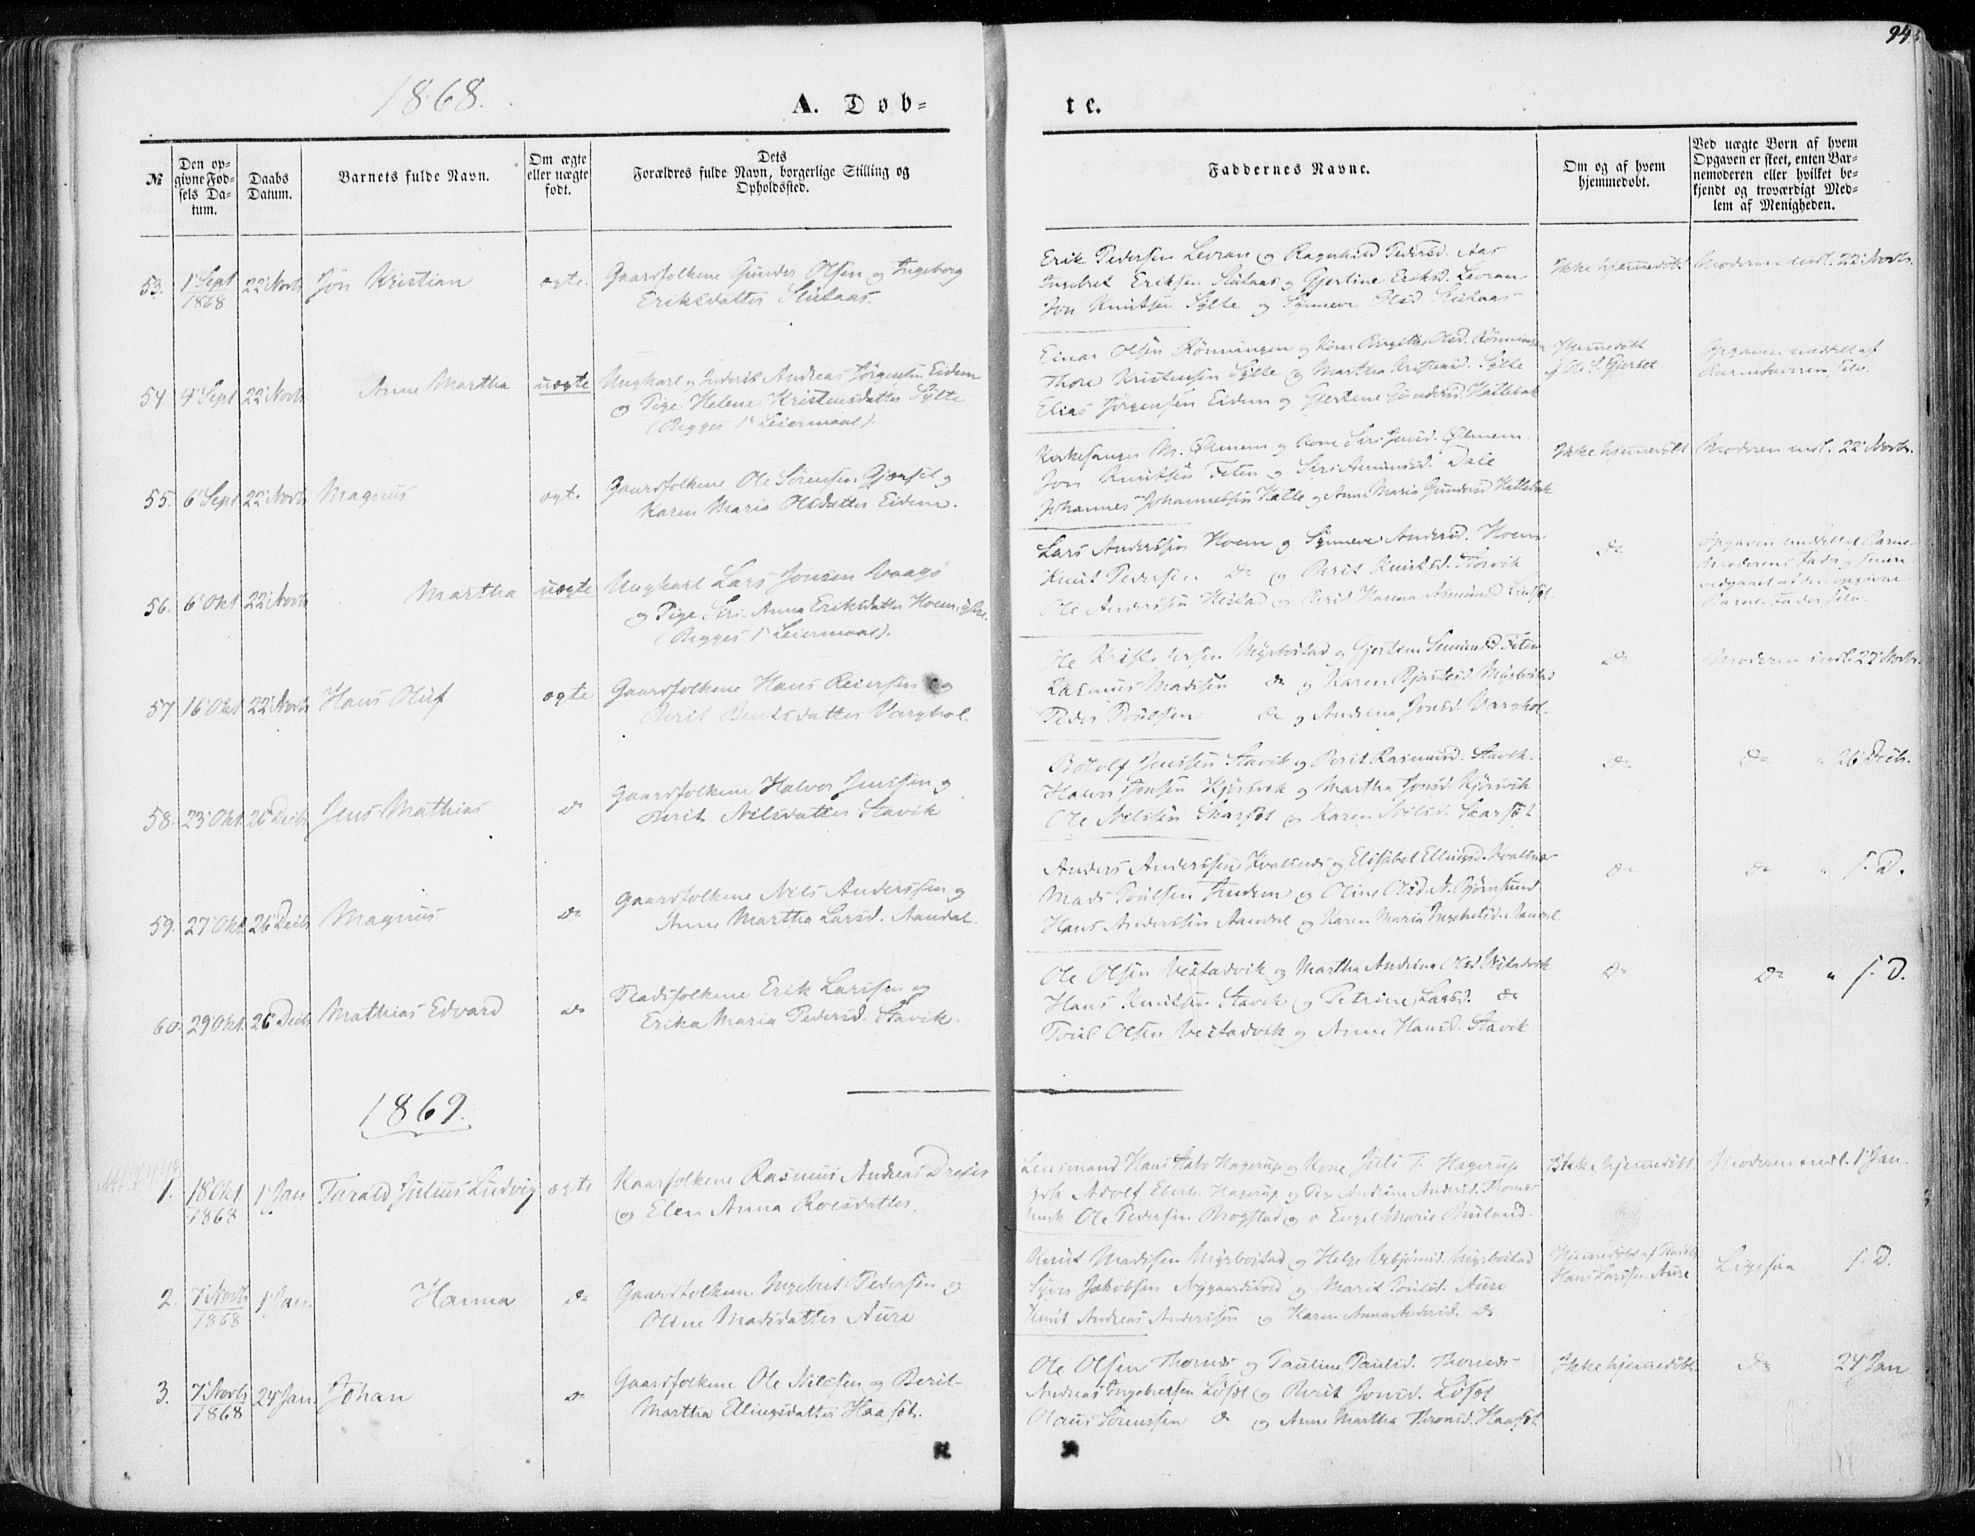 94
1868.
A. Døb-
te.
№
Den op-
givne Fød-
sels Da-
tum.
Daabs
Datum.
Barnets fulde Navn.
Om ægte
eller uægte
født.
Dets
Forældres fulde Navn, borgerlige Stilling og
Opholdssted.
Faddernes Navne.
Om og af hvem
hjemmedøbt.
Ved uægte Børn af hvem
Opgaven er skeet, enten Bar-
nemoderen eller hvilket be-
kjendt og troværdigt Med-
lem af Menigheden.
53. 1 Sept 1868 22 Novb Jon Kristian ægte.
Gaardfolkene Gunder Olsen og Ingeborg
Eriksdatter Slutaas.
Erik Pedersen Levran og Ragnhild Pedersd. Aas
Ingebret Eriksen Slutaas og Gjertine Eriksd. Levran
Jon Knutsen Sylte og Synneve Olsd Slutaas
Ikke hjemmedøbt Moderen indl. 22 Novb.
54 4 Sept 22 Novb Anne Martha uægte
Ungkarl og Inderst Andreas Jørgensen Eidem
og Pige Helene Kristensdatter Sylte
(Begges 1ste Leiermaal).
Einar Olsen Rønningen og Kone Birgitte Olsd. Rønningen
Thore Kristensen Sylte og Martha Kristensd. Sylte
Elias Jørgensen Eidem og Gjertine Gundersd Hattebak
Hjemmedøbt
Opgaven meddelt af
Barnefaderen selv.
55. 6 Sept 22 Novb Magnus ægte
Gaardfolkene Ole Sørensen Gjerset og
Karen Maria Olsdatter Eidem.
Kirkesanger M. Ølmem og Kone Siri Jensd. Ølmem
Jon Knutsen Feten og Siri Amundsd. Dale
Johannes Johannessen Hatle og Anne Maria Gundersd Hattebak
Ikke hjemmedøbt Moderen indl. 22 Novb.
56. 6 Okt 22 Novb Martha uægte
Ungkarl Lars Jonsen Vaagø
og Pige Siri Anna Eriksdatter Hoem
(Begges 1ste Leiermaal).
Lars Anderssen Hoem og Synneve Andersd. Hoem
Knut Pedersen do og Berit Knutsd. Storvik
Ole Anderssen Hestad og Berit Hanna Amundsd Lindset
do
Opgaven meddelt af Barne-
moderens Fader og senere
vedgaaet af den opgivne
Barnefader selv.
57 16 Okt 22 Novb Hans Oluf ægte
Gaardfolkene Hans Reiersen og
Berit Bentsdatter Varghol.
Ole Kristofersen Myrbostad og Gjertine Simensd Feten
Rasmus Madssen do og Karen Bjørnsd. Myrbostad
Peder Poulssen do og Andrina Jonsd. Varghol.
do Moderen indl. 22 Novb.
58. 23 Okt. 26 Decb. Jens Mathias do
Gaardfolkene Halvor Jenssen og
Berit Nilsdatter Stavik
Botolf Jenssen Stavik og Berit Rasmusd. Stavik.
Halvor Jonsen Kjørsvik og Martha Jonsd. Kjørsvik
Ole Nilssen Skarset og Karen Nilsd. Skarset
do do " 26 Decb.
59. 27 Okt. 26 Decb Magnus do
Gaardfolkene Nils Anderssen og
Anne Martha Larsd. Aandal.
Anders Anderssen Kvalsnes og Elisabet Ellingsd. Kvalsnes
Mads Poulsen Indem og Oline Olsd. N. Bjørnsund
Hans Anderssen Aandal og Karen Maria Ingebrtsd. Aandal
do do " s. D.
60. 29 Okt. 26 Decb Mathias Edvard do
Pladsfolkene Erik Larssen og
Erika Maria Pedersd. Stavik.
Ole Olsen Vestadvik og Martha Andrina Olsd Vestadvik
Hans Knutsen Stavik og Petrine Larsd. do
Poul Olsen Vestadvik og Anne Hansd. Stavik
do do " s. D.
1869.
1. 18 Okt. 1868 1 Jan Tarald Julius Ludvig ægte
Kaarfolkene Rasmus Andreas Dreier
og Elen Anna Roesdatter.
Lensmand Hans Stabo Hagerup og Kone Juli T. Hagerup
Adolf Eberh. Hagerup og Pige Andrine Andersd. Thornes
Ole Pedersen Brogstad og Engel Marie Breiland.
Ikke hjemmedøbt. Moderen indl. 1 Jan.
2. 7 Novb 1868 1 Jan. Hanna do
Gaardfolkene Ingebret Pedersen og
Oline Madsdatter Aure
Knut Madssen Myrbostad og Helge Esbjørnsd. Myrbostad
Syver Jakobsen Nygaardsvold og Marit Poulsd. Aure
Knut Andreas Anderssen og Karen Anna Andersd. do
Hjemmedøbt af
Hans Larssen Aure
Ligesaa s. D.
3. 7 Novb 1868 24 Jan. Johan do
Gaardfolkene Ole Nilssen og Berit-
Martha Ellingsdatter Haaset.
Ole Olsen Thornes og Pauline Paulsd. Thornes
Andreas Ingebretsen Løset og Berit Jonsd. Løset
Olaus Sørenssen do og Anne Martha Thronsd. Haaset
Ikke hjemmedøbt do 24 Jan